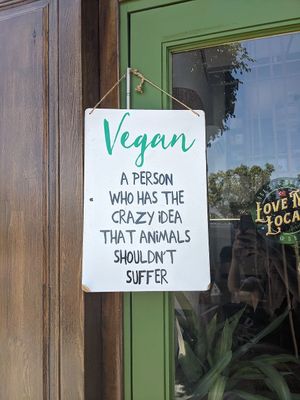 Vegan
A PERSON
WHO HAS THE
CRAZY IDEA
THAT ANIMALS
SHOULDN'T
SUFFER
LOVE
LOCA